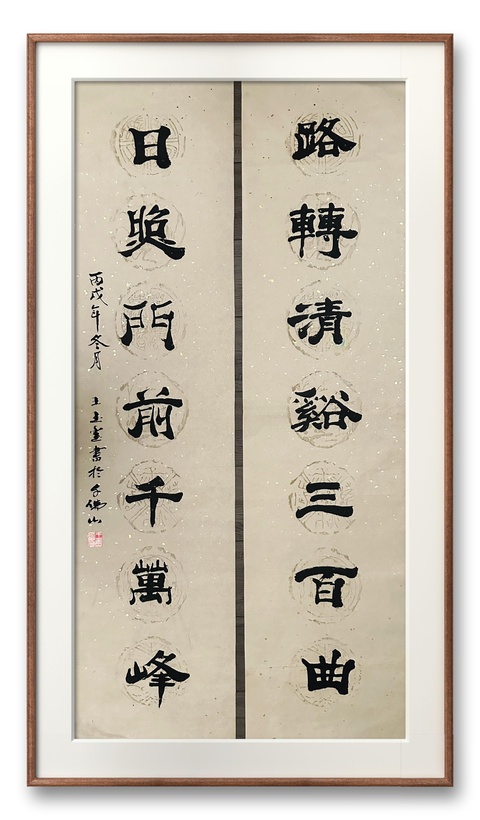 路轉清谿三百曲
日照門前千萬峰
丙戌年冬月
王玉書於千佛山